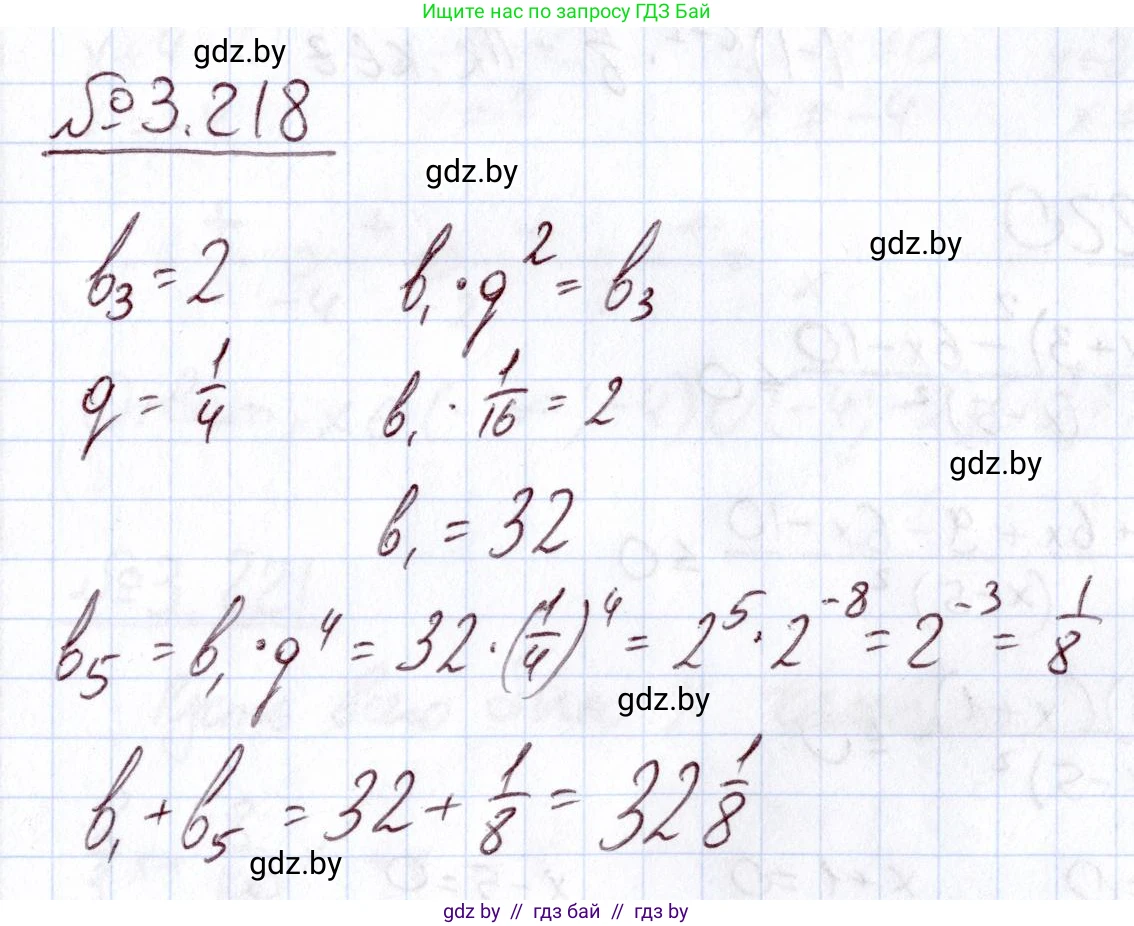 Ищите нас по запросу ГДЗ Бай
gdz.by
№3.218
gdz.by
b₃ = 2 b₁·q² = b₃
gdz.by
q = 1/4 b₁ · 1/16 = 2
gdz.by
b₁ = 32
b₅ = b₁·q⁴ = 32·(1/4)⁴ = 2⁵·2⁻⁸ = 2⁻³ = 1/8
gdz.by
b₁ + b₅ = 32 + 1/8 = 32 1/8
gdz.by
gdz by // гдз бай // гдз by